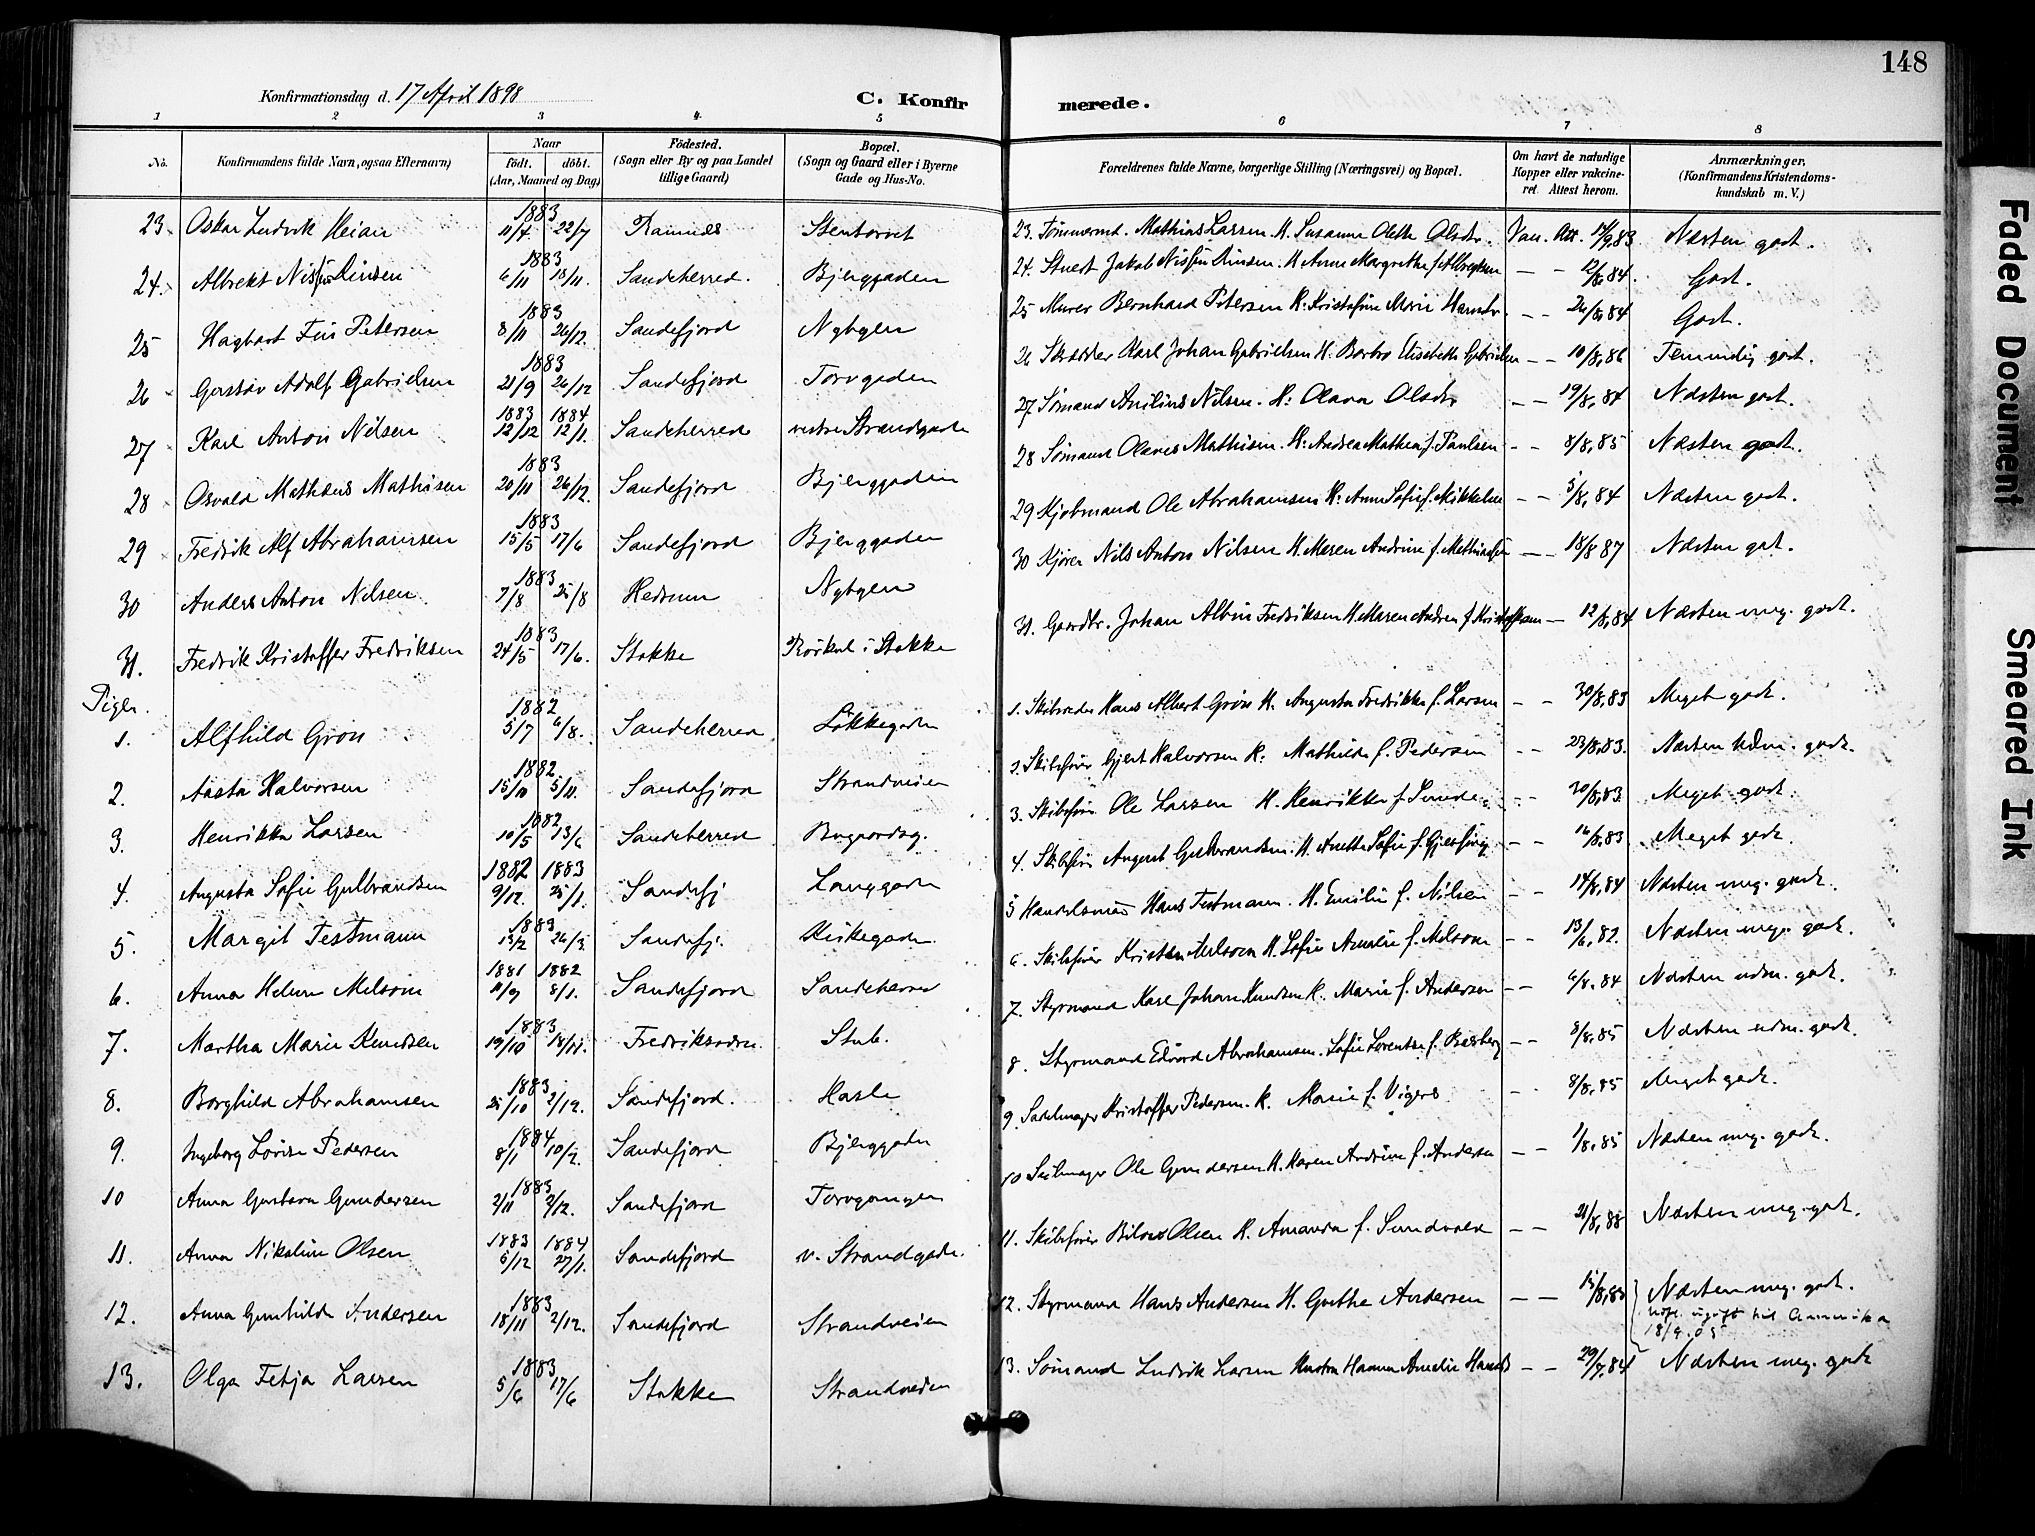 148
Konfirmationsdag d. 17 April 1898
C. Konfirmerede.
1 2 3 4 5 6 7 8
No. Konfirmandens fulde Navn, ogsaa Efternavn) Naar født. døbt. (Aar, Maaned og Dag) Fødested. (Sogn eller By og paa Landet tillige Gaard) Bopæl. (Sogn og Gaard eller i Byerne Gade og Hus-No. Forældrenes fulde Navne, borgerlige Stilling (Næringsvei) og Bopæl. Om havt de naturlige Kopper eller vakcineret. Attest herom. Anmærkninger. (Konfirmandens Kristendomskundskab m. V.)
23. Oskar Ludvik Heian 1883 11/4 22/7 Ramnes 23. Mathias Larsen. H. Susanne Olette Olsdr. Vac. Att. 83 Næsten godt.
24. Albrekt 1883 6/11 18/11. Sandeherred. Bjerggaden 24. Stuert Jakob H Anne Margrethe f. Albregtsen - - 12/8, 84. Godt.
25 Hagbart Petersen 1883 8/11 26/12. Sandefjord Nybyen 25 Murer Bernhard Petersen H. Kristofine Marie - - 26/8, 84 Godt.
26 Gustav Adolf Gabrielsen 1883 21/9 26/12 Sandefjord Torvgaden 26 Skrædder Karl Johan Gabrielsen H. Barbro Elisabeth Gabrielsen - - 10/8, 86 Temmelig godt.
27 Karl Anton Nilsen 1883 12/12 1884 12/1. Sandeherred vestre Strandgade 27 Sømand Nilsen. H: Olava Olsdr - - 19/8, 84 Næsten godt.
28 Osvald Mathæus Mathisen 1883 20/11 26/12. Sandefjord Bjerggaden 28 Sømand Olaves Mathisen. H: Andrea Mathea f. Paulsen - - 8/8, 85 Næsten godt.
29 Fredrik Alf Abrahamsen 1883 15/5 17/6 Sandefjord Bjerggaden 29 Kjøbmand Ole Abrahamsen H: Anne Sofie f. Mikkelsen - - 5/8, 84 Næsten godt.
30 Anders Anton Nilsen 1883 7/8 25/8 Hedrum Nybyen 30 Kjører Nils Anton Nilsen H. Maren Andrine f. Mathiasen - - 18/8 87 Næsten godt.
31. Fredrik Kristoffer Fredriksen 1883 24/5 17/6. Stokke i Stokke 31. Gaardbr. Johan Albin Fredriksen H. Maren Andrea f. Kristoffersen - 12/8, 84 Næsten meg. godt.
Piger.
1. Alfhild Grøn 1882 5/7 6/8. Sandeherred Løkkegaden 1. Skibsreder Hans Albert Grøn H. Augusta Fredrikke f. Larsen - - 30/8, 83 Meget godt.
2. Aasta Halvorsen 1882. 15/10 5/11. Sandefjord Strandveien 2. Skibsfører Gjert Halvorsen H: Mathilde f. Pedersen - - 23/8, 83. Næsten udm. godt.
3. Henrikka Larsen 1882 10/5 13/6 Sandeherred Bugaardsg. 3. Skibsfører Ole Larsen H. Henrikke f. - - 20/8, 83. Meget godt.
4. Augusta Sofie Gulbrandsen 1882 9/12. 1883 25/1. Sandefj Langgaden 4. Skibsfører August Gulbrandsen. H. Anette Sofie f. - - 16/8, 83 Meget godt.
5. Margit Testmann 1883 13/2 26/3. Sandefj. Kirkegaden. 5 Handelsmand Hans Testmann. H. Emilie f. Nilsen - - 14/8, 84 Næsten meg. godt.
6. Anna Helene Melsom 1881 11/9 1882 8/1. Sandefjord Sandeherred 6. Skibsfører Kristen Melsom H. Sofie Amalie f. Melsom - - 13/6, 82. Næsten meg. godt.
7. Martha Marie Knudsen 1883 19/10 18/11. Fredriksværn. Stub. 7. Styrmand Karl Johan Knudsen H. Marie f. Andersen - - 6/8, 84 Næsten udm. godt.
8. Borghild Abrahamsen 1883 25/10 2/12. Sandefjord. Hasle 8. Styrmand Edvard Abrahamsen. Sofie Lorentse f. - - 8/8, 85 Næsten udm. godt.
9. Ingeborg Lovise Pedersen 1884 8/1 10/2. Sandefjord Bjerggaden 9. Sadelmager Kristoffer Pedersen. H. Marie f. Vigers - 8/8, 85 Meget godt.
10 Anna Gustava Gundersen 1883 2/11 2/12. Sandefjord Torvgangen 10 Seilmager Ole Gundersen H. Maren Andrine f. Andersen - - 1/8, 85 Næsten meg. godt.
11. Anna Nikoline Olsen 1883 5/12 1884 27/1. Sandefjord v. Strandgade. 11. Skibsfører Olsen H. Amanda f. Sundvald - - 21/8, 88 Næsten meg. godt.
12. Anna Gunhilda Andersen 1883 18/11 2/12. Sandefjord Strandveien 12. Styrmand Hans Andersen H. Grethe Andersen - - 15/8, 85 Næsten meg. godt.
ugift til Amerika
18/9. 05
13. Olga Larsen 1883 5/6 17/6 Stokke Strandveien 13. Sømand Ludvik Larsen Hustru Hanna Amelie - - 29/7, 84 Næsten meg. godt
Faded Document
Smeared Ink